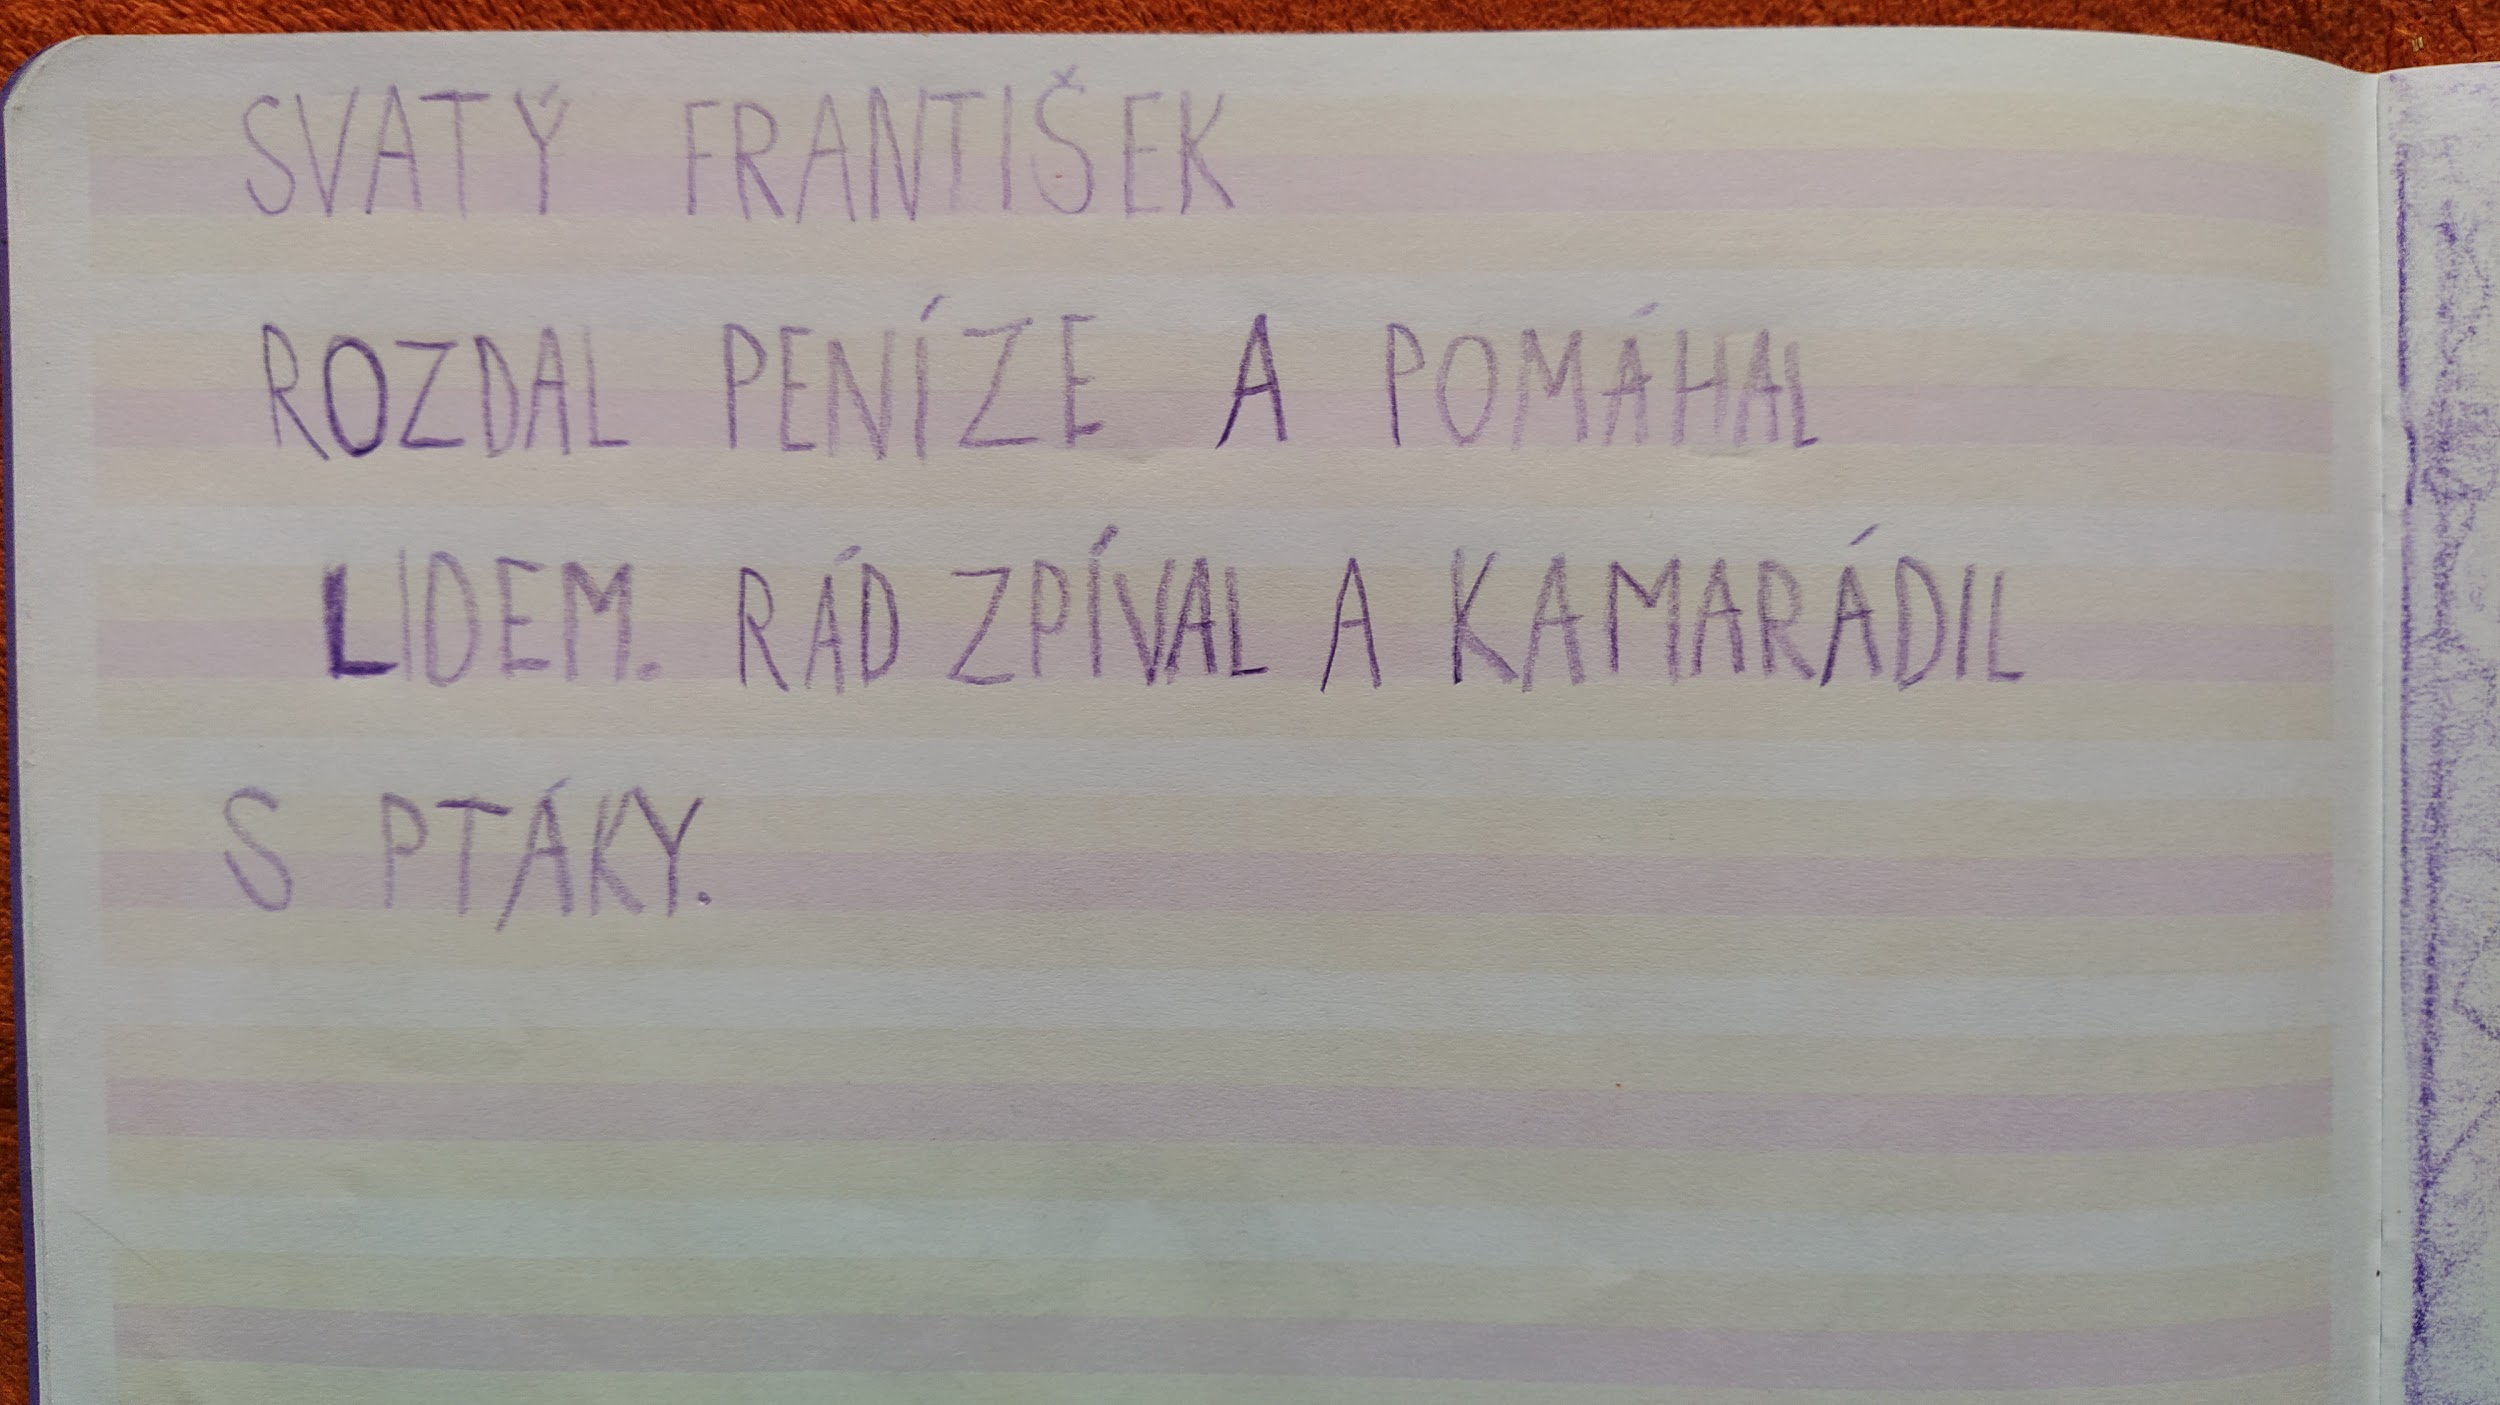 SVATÝ FRANTIŠEK
ROZDAL PENÍZE A POMÁHAL
LIDEM. RÁD ZPÍVAL A KAMARÁDIL
S PTÁKY.